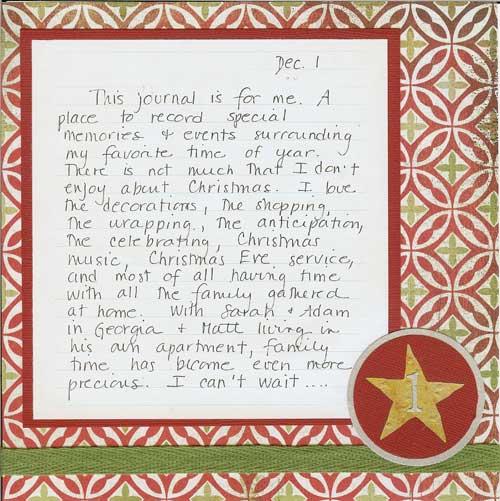 Dec. 1
This journal is for me. A
place to record special
memories & events surrounding
my favorite time of year.
There is not much that I don't
enjoy about Christmas. I love
the decorations, the shopping,
the wrapping, the anticipation,
the celebrating, Christmas
music, Christmas Eve service,
and most of all having time
with all the family gathered
at home. With Sarah & Adam
in Georgia & Matt living in
his own apartment, family
time has become even more
precious. I can't wait....
1